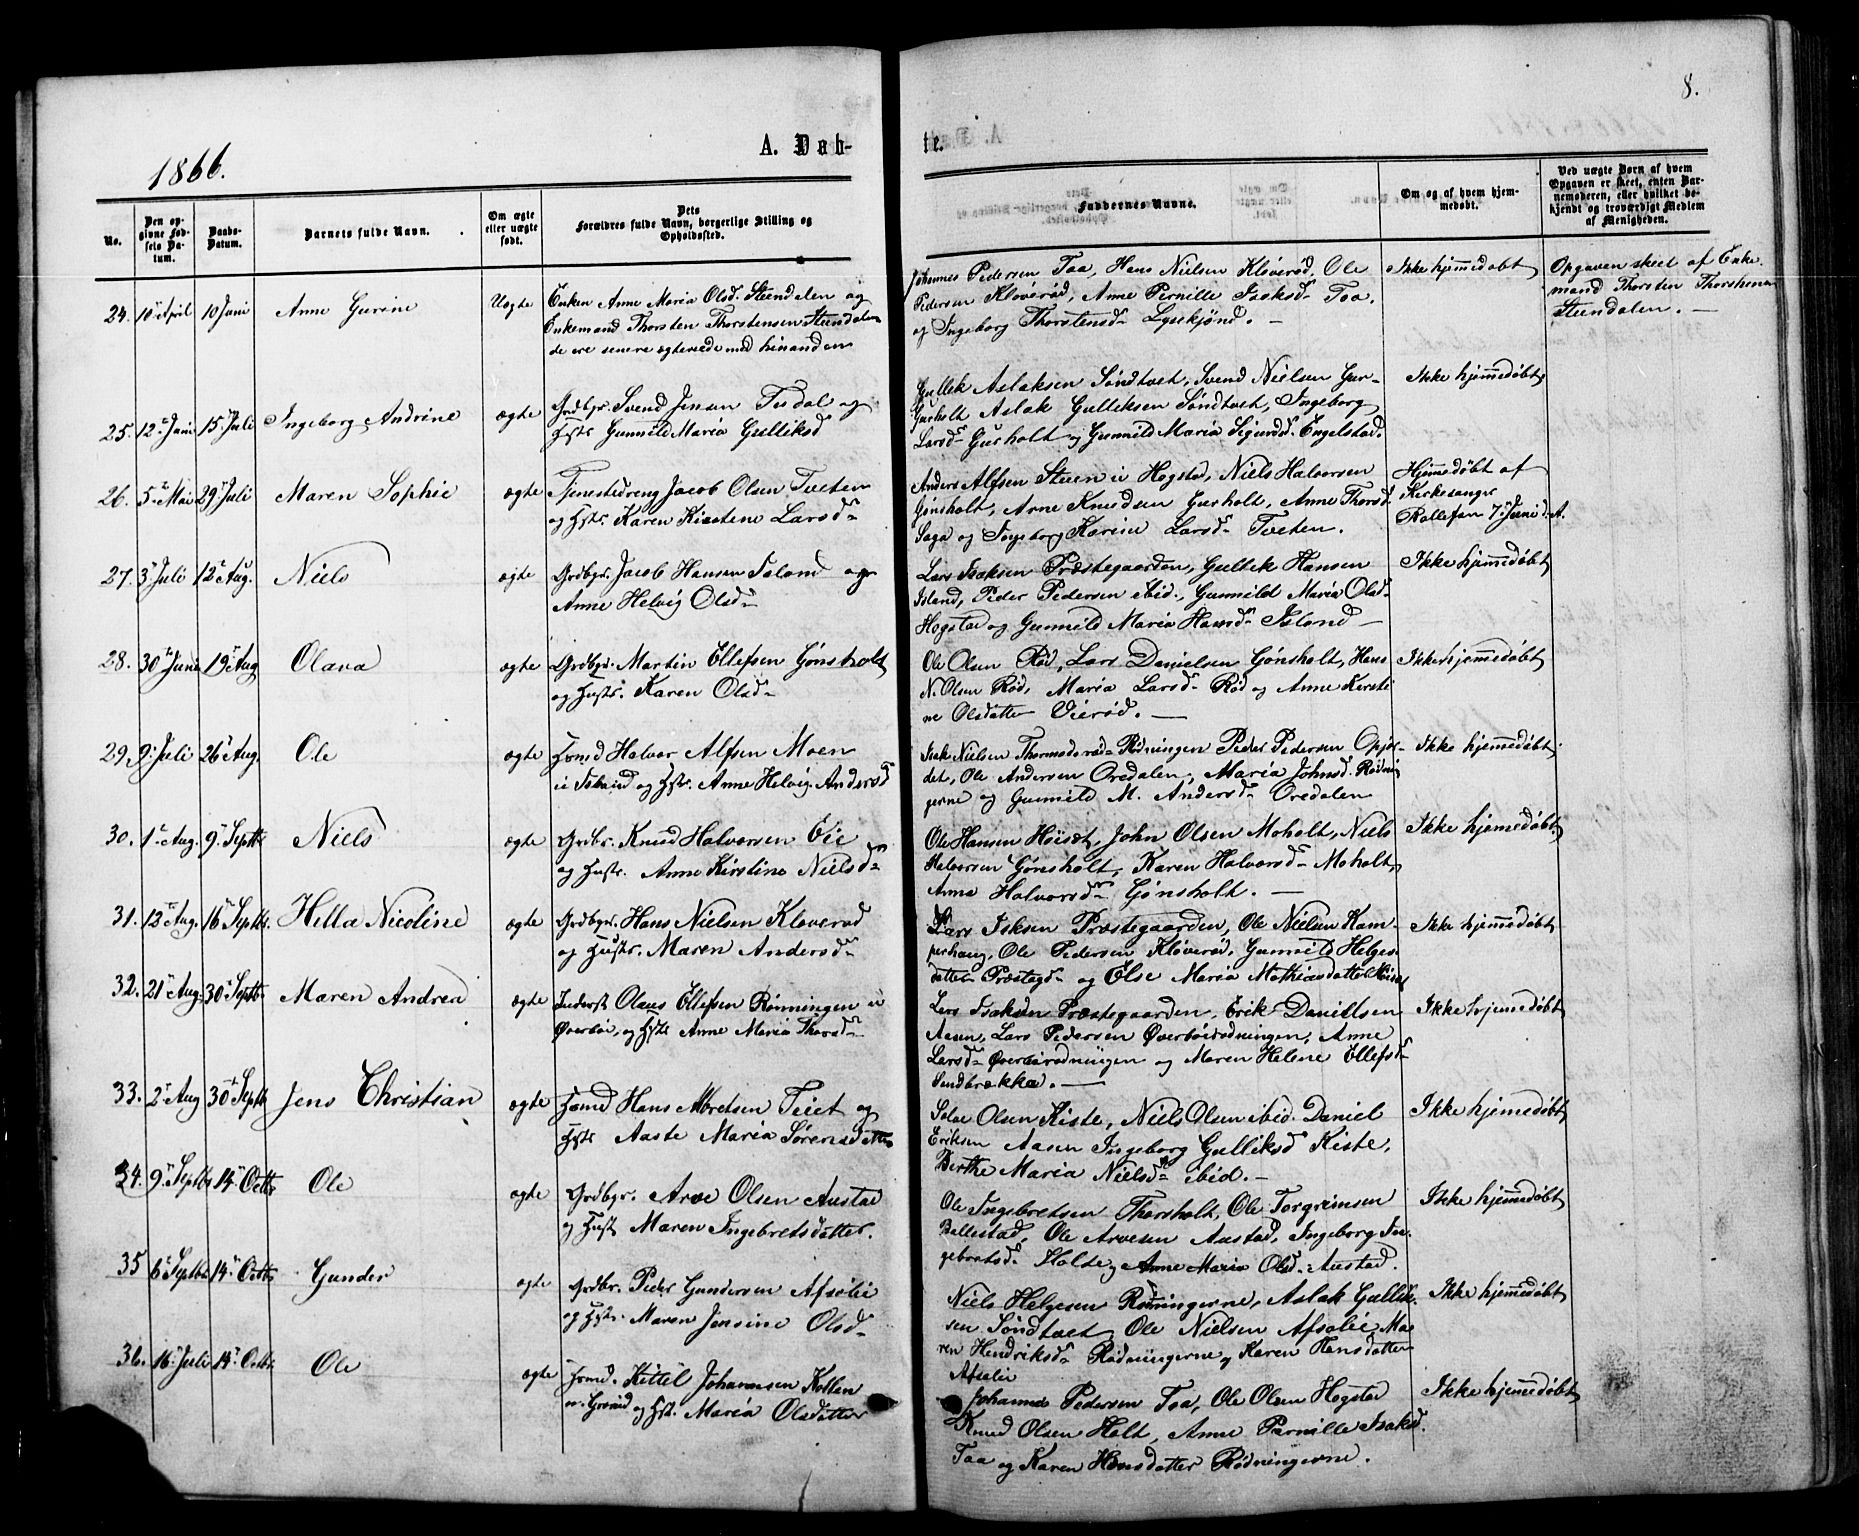 8.
1866.
A. Døbte.
No.
Den opgivne Fødsels Datum.
Daabs-Datum.
Barnets fulde Navn.
Om ægte eller uægte født.
Dets Forældres fulde Navn, borgerlige Stilling og Opholdssted.
Faddernes Navne.
Om og af hvem hjemmedøbt.
Ved uægte Børn af hvem Opgaven er skeet, enten Barnemoderen, eller hvilket bekjendt og troværdigt Medlem af Menigheden.
24. 10 April 10 Juni Anne Gurine Uægte
Enken Anne Maria Olsd. Steendalen og
Enkemand Thorsten Thorstensen Steendalen
de ere senere ægteviede med hinanden
Johannes Pedersen Taa, Hans Nielsen Kløverød, Ole
Pedersen Kløverød, Anne Pernille Isaksd. Taa,
og Ingeborg Thorstensd. Lysekjønd. —
Ikke hjemmedøbt
Opgaven skeet af Enke-
mand Thorsten Thorstensen
Steendalen. —
25. 12 Juni 15 Juli Ingeborg Andrine ægte
Grdbgr. Svend Jensen Tudal og
Hstr. Gunnild Maria Gulliksd
Gullik Aslaksen Søndtvet, Svend Nielsen Gur-
Gurholt Aslak Gulliksen Søndtvet, Ingeborg
Larsd. Gurholt og Gunnild Maria Sigurdsd. Engelstad.
Ikke hjemmedøbt
26. 5 Mai 29 Juli Maren Sophie ægte
Tjenestedreng Jacob Olsen Tveten
og Hstr. Karen Kirstine Larsd.
Anders Alfsen Steen i Hogstad, Niels Halvorsen
Gønsholt, Arne Knudsen Gurholt, Anne Thorsd.
Saga og Ingeborg Karine Larsd. Tveten.
Hjemmedøbt af
Kirkesanger
Rollefsen 7 Juni d. A.
27. 3 Juli 12 Aug. Niels ægte
Grdbgr. Jacob Hansen Island og
Anne Helvig Olsd.
Lars Isaksen Præstegaarden, Gullik Hansen
Island, Peder Pedersen ibid., Gunnild Maria Olsd.
Hogstad og Gunnild Maria Hansd. Island —
Ikke hjemmedøbt
28. 30 Juni 19 Aug Olava ægte
Grdbgr. Martin Ellefsen Gønsholt
og Hustr. Karen Olsd.
Ole Olsen Rød, Lars Danielsen Gønsholt, Hans
N. Olsen Rød, Maria Larsd. Rød og Anne Kirsti-
ne Olsdatter Vierød. —
Ikke hjemmedøbt
29. 9 Juli 26 Aug. Ole ægte
Hsmd Halvor Alfsen Moen
i Island og Hstr. Anne Helvig Andersd
Isak Nielsen Thormodsrød-Rødningen Peder Pedersen Opjor-
det, Ole Andersen Oredalen, Maria Johnsd. Rødnin
gerne og Gunnild M. Andersd. Oredalen
Ikke hjemmedøbt
30. 1 Aug. 9 Septb. Niels ægte
Grdbr. Knud Halvorsen Eie
og Hustr. Anne Kirstine Nielsd.
Ole Hansen Høisæt, John Olsen Moholt, Niels
Halvorsen Gønsholt, Karen Halvorsd. Moholt,
Anne Halvorsd. Gønsholt. —
Ikke hjemmedøbt
31. 12 Aug. 16 Septb. Hella Nicoline ægte
Grdbgr. Hans Nielsen Kløverød
og Hustr. Maren Andersd.
Lars Isksen Præstegaarden, Ole Nielsen Kam-
perhaug, Ole Pedersen Kløverød, Gunnild Helges-
datter Præstegd. og Else Maria Mathiasdatter
Ikke hjemmedøbt
32. 21 Aug. 30 Septb. Maren Andrea ægte
Inderst Olaus Ellefsen Rønningen i
Øverbøe, og Hstr. Anne Maria Thorsd.
Lars Isaksen Præstegaarden, Erik Daniellsen
Aasen, Lars Pedersen Øverbøerødningen, Anne
Larsd. Øverbøerødningen og Maren Helene Ellefsd.
Sundbrække. —
Ikke hjemmedøbt
33. 2 Aug 30 Septb Jens Christian ægte
Hsmd Hans Mortsen Teiet og
Hstr. Aaste Maria Sørensdatter
Solve Olsen Kiste, Niels Olsen ibid. Daniel
Eriksen Aasen Ingeborg Gulliksd Kiste,
Birthe Maria Nielsd. ibid. —
Ikke hjemmedøbt
34. 9 Septbr 14 Octb Ole ægte
Grdbgr. Arve Olsen Austad
og Hust Maren Ingebretsdatter.
Ole Ingebretsen Thorsholt, Ole Torgrimsen
Bellestad, Ole Arvesen Austad, Ingeborg In-
gebretsd. Holte og Anne Maria Olsd. Austad.
Ikke hjemmedøbt
35 6 Septbr 14 Octb Gunder ægte
Grdbr. Peder Gundersen Afsølie
og Hstr. Maren Jensine Olsd.
Niels Helgesen Rødningerne, Aslak Gullik-
sen Søndtvet, Ole Nielsen Afsølie, Ma-
ren Hendriksd. Rødningerne og Karen Hansdatter
Afsølie
Ikke hjemmedøbt
36. 16 Juli 14 Octb. Ole ægte
Hsmd. Kittel Johannsen Kollen
u. Grinid og Hst. Maria Olsdatter
Johannes Pedersen Taa, Ole Olsen Hogstad
Knud Olsen Holt, Anne Pernille Isaksd.
Taa og Karen Hansdatter Rødningerne.
Ikke hjemmedøbt